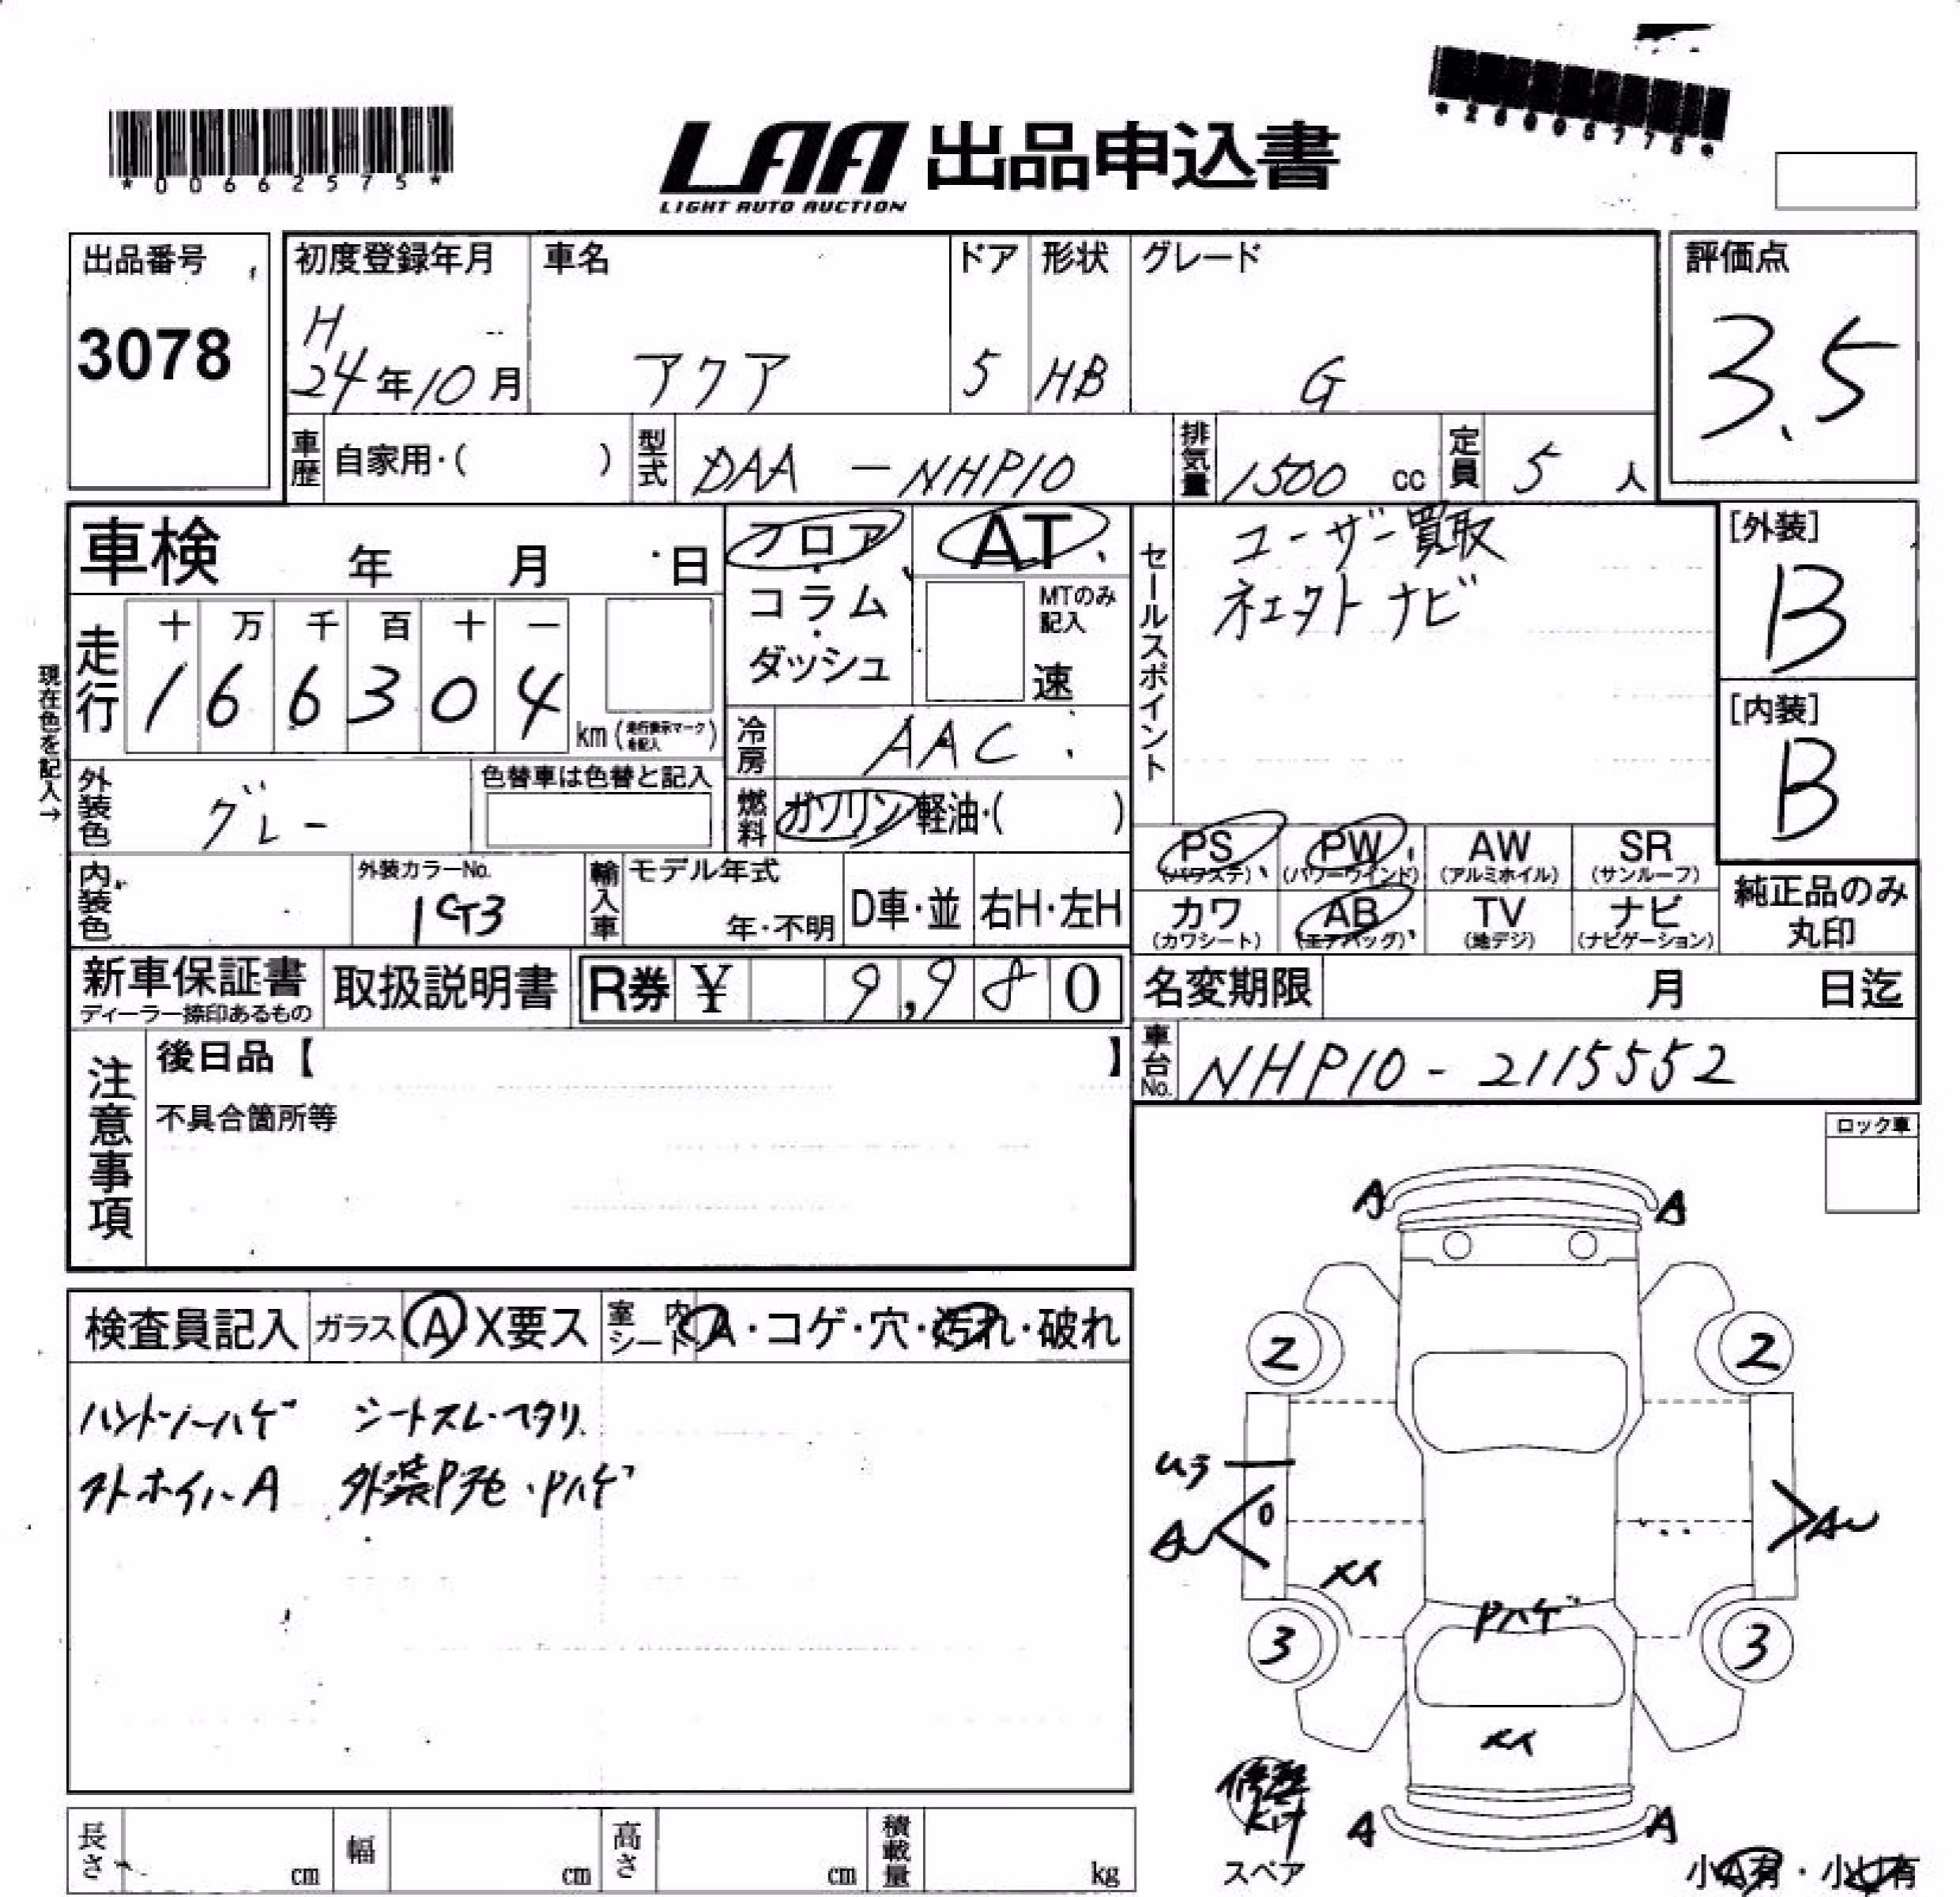 *00662575*
LAA 出品申込書
LIGHT AUTO AUCTION
*26006775*
出品番号
3078
初度登録年月
H
24年10月
車名
アクア
ドア
5
形状
HB
グレード
G
評価点
3.5
車歴 自家用・( )
型式 DAA - NHP10
排気量 1500 cc
定員 5 人
車検 年 月 日
フロア・コラム・ダッシュ
AT
MTのみ記入
速
セールスポイント
ユーザー買取
ナビ
[外装]
B
[内装]
B
現在色を記入→
走行
十 万 千 百 十 一
1 6 6 3 0 4
km(走行表示マークを記入)
冷房 AAC
外装色 グレー
色替車は色替と記入
燃料 ガソリン・軽油・( )
PS (パワステ)
PW (パワーウインド)
AW (アルミホイル)
SR (サンルーフ)
カワ (カワシート)
AB (エアバッグ)
TV (地デジ)
ナビ (ナビゲーション)
純正品のみ丸印
内装色
外装カラーNo.
1G3
輸入車
モデル年式
年・不明
D車・並
右H・左H
新車保証書
ディーラー捺印あるもの
取扱説明書
R券 ¥ 9,980
名変期限 月 日迄
車台No. NHP10-2115552
注意事項
後日品【 】
不具合箇所等
ロック車
検査員記入
ガラス A X要ス
室内シート A・コゲ・穴・汚れ・破れ
ハンドルハゲ シートスレ・ヘタリ
A 外装P・Pハゲ
A A
2 2
ムラ
0
3 3
Pハゲ
A A
スペア
小A有・小U有
長さ cm
幅 cm
高さ cm
積載量 kg